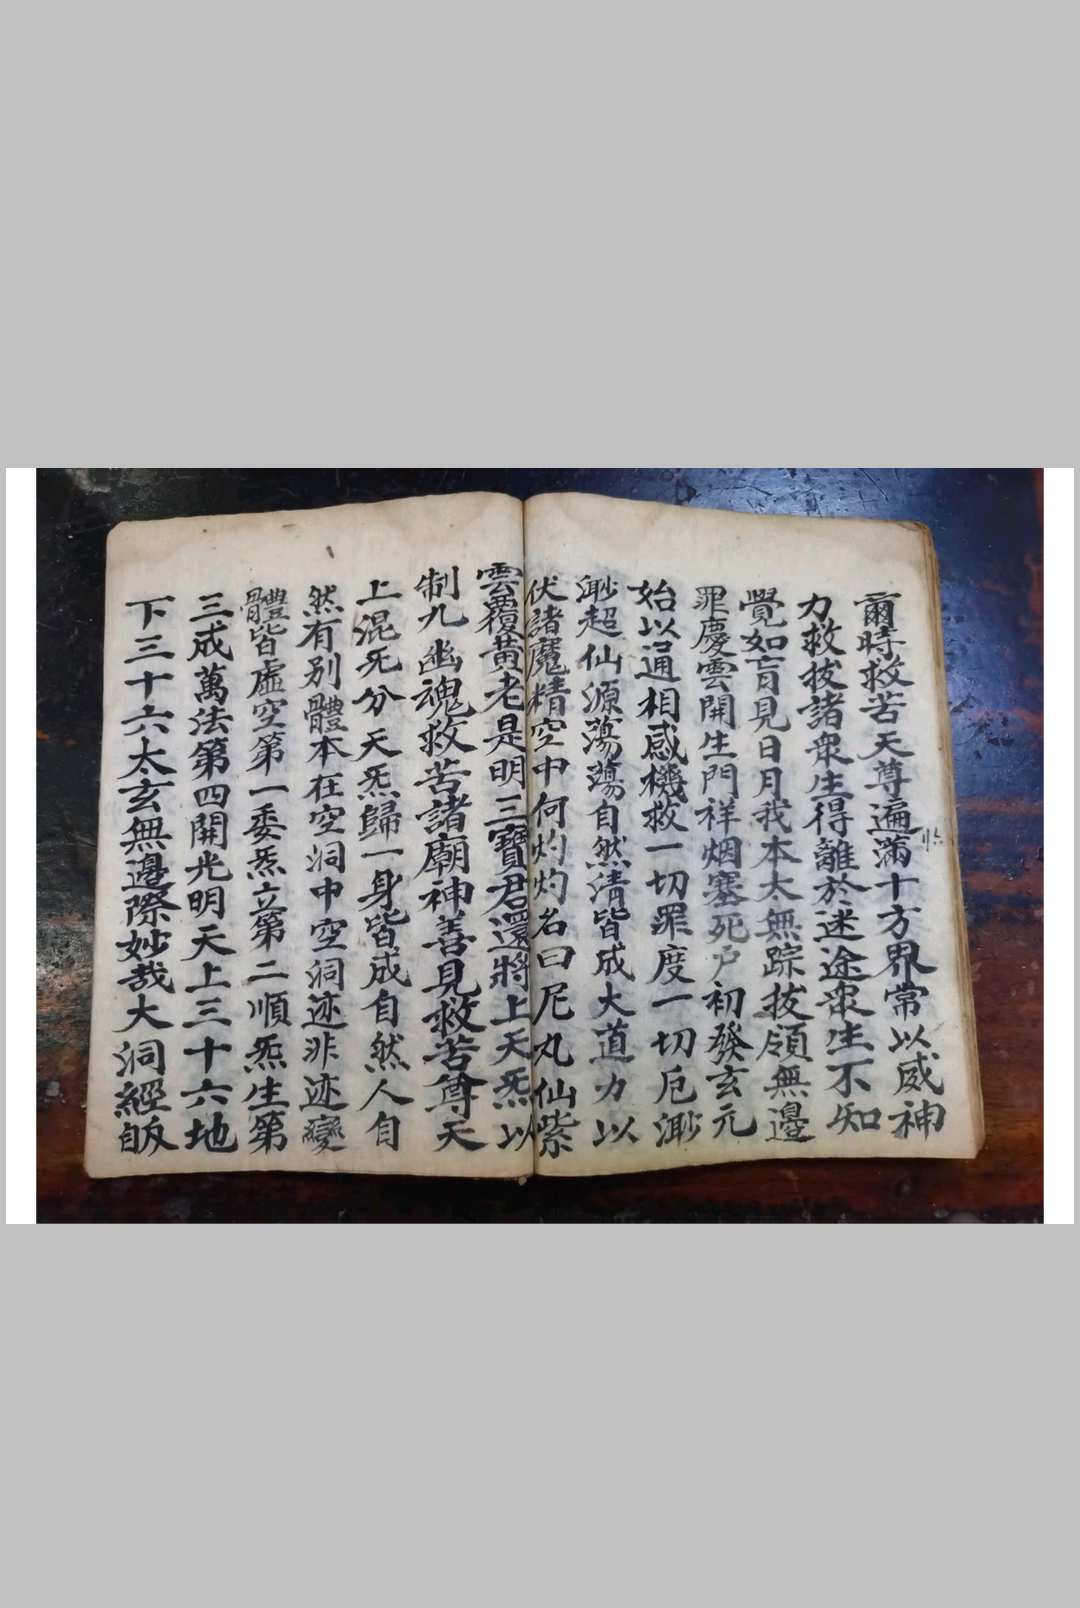 爾時救苦天尊遍滿十方界常以威神
力救拔諸衆生得離於迷途衆生不知
覺如盲見日月我本太無踪拔領無邊
罪慶雲開生門祥烟塞死户初發玄元
始以通相感機救一切罪度一切厄渺
渺超仙源蕩蕩自然清皆成大道力以
伏諸魔精空中何灼灼名曰尼丸仙紫
雲覆黄老是明三寶君還將上天炁以
制九幽魂救苦諸廟神善見救苦尊天
上混死分天炁歸一身皆成自然人自
然有别體本在空洞中空洞迹非迹變
體皆虚空第一委炁立第二順炁生第
三成萬法第四開光明天上三十六地
下三十六太玄無邊際妙哉大洞經皈